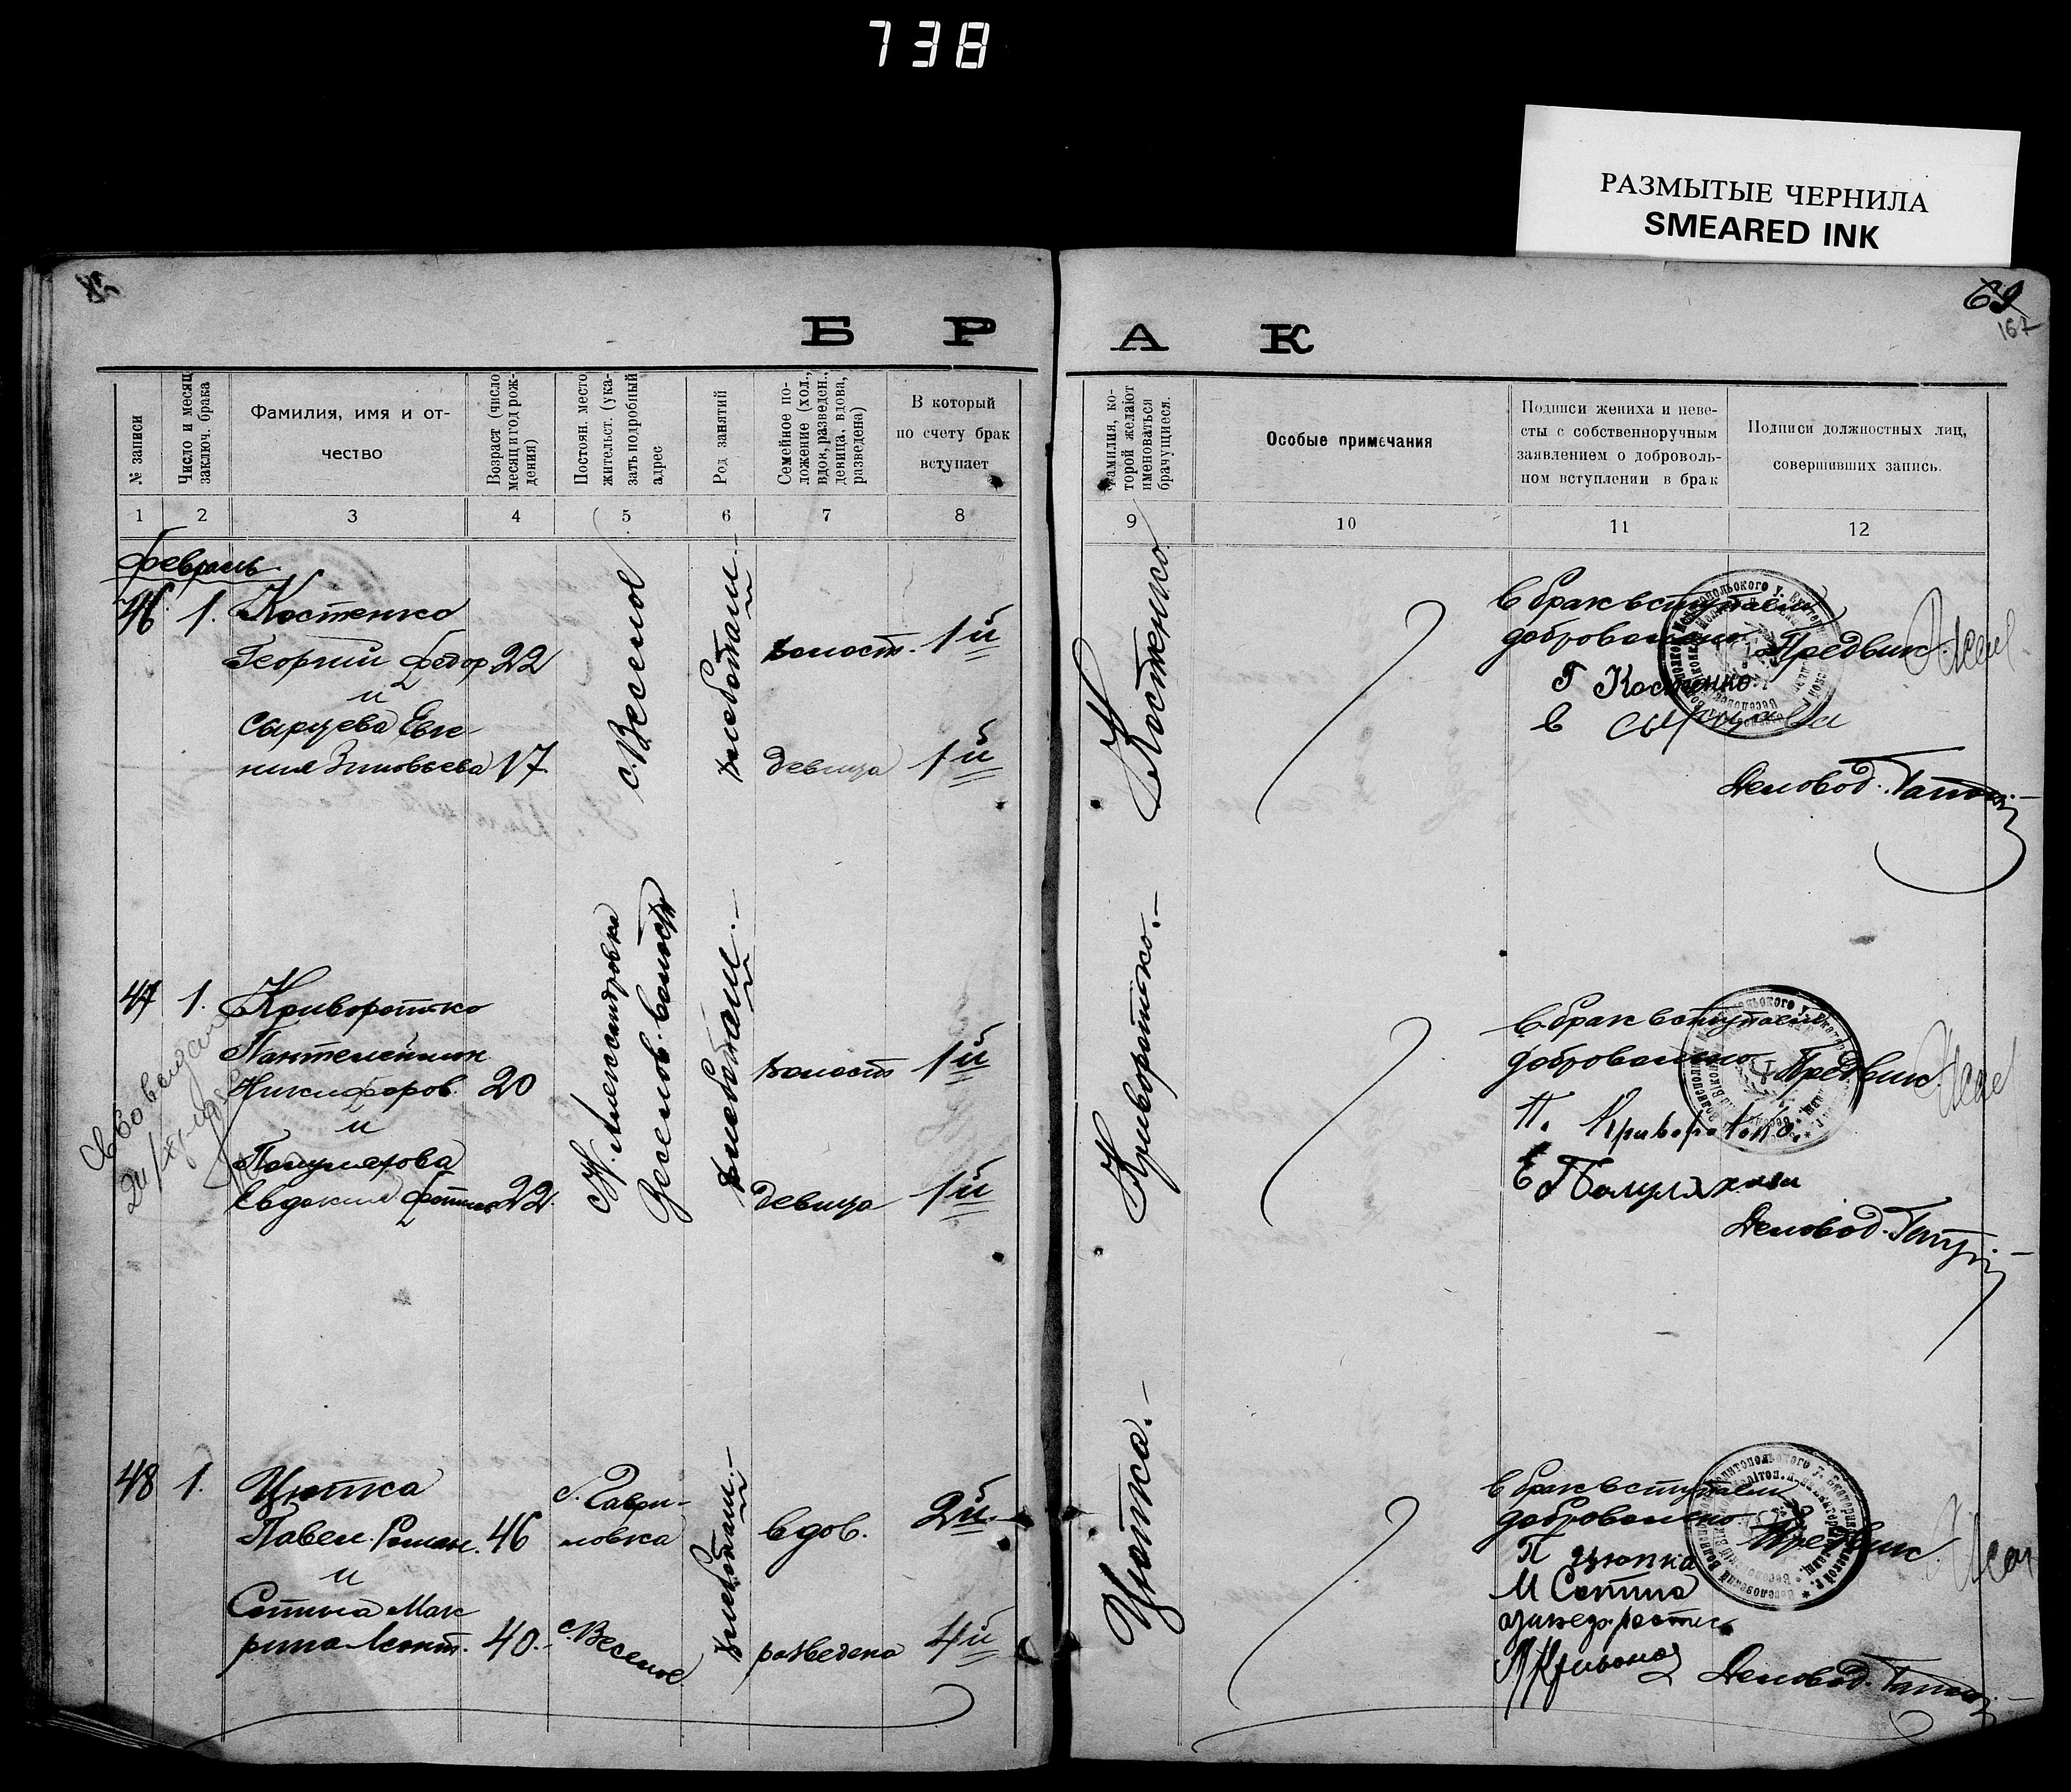 738
РАЗМЫТЫЕ ЧЕРНИЛА
SMEARED INK
69
167
Б Р А К
№ записи
Число и месяц
заключ. брака
Фамилия, имя и от-
чество
Возраст (число
месяц и год рож-
дения)
Постоян. место
жительст. (ука-
зать подробный
адрес
Род занятий
Семейное по-
ложение (хол.,
вдов, разведен.,
девица, вдова,
разведена)
В который
по счету брак
вступает
Фамилия, ко-
торой желают
именоваться
брачущиеся.
Особые примечания
Подписи жениха и неве-
сты с собственноручным
заявлением о доброволь-
ном вступлении в брак
Подписи должностных лиц,
совершивших запись.
1 2 3 4 5 6 7 8 9 10 11 12
февраль
46 1. Костенко
Георгий Федор 22
и
Сырцева Евге-
ния Зиновьева 17
с. Веселое
хлебопаш.
холост. 1й
девица 1й
Костенко
В брак вступаем
добровольно
Г Костенко
Е Сырцева
Предвик.
Деловод.
47 1. Криворотко
Пантелеймон
Никифоров. 20
и
Полулехова
Евдокия 22
Н. Александровка
Веселов. волости
хлебопаш.
холост 1й
девица 1й
Криворотко.
В брак вступаем
добровольно
П. Криворотко.
Е
Предвик.
Деловод.
48 1. Цюпка
Павел Роман. 46
и
Сотина Мак
рина Леонт. 40.
с. Гаври-
ловка
с. Веселое
хлебопаш.
вдов. 2й
разведена 4й
Цюпка.
В брак вступаем
добровольно
П Цюпка
М Сотина
Предвик.
Деловод.